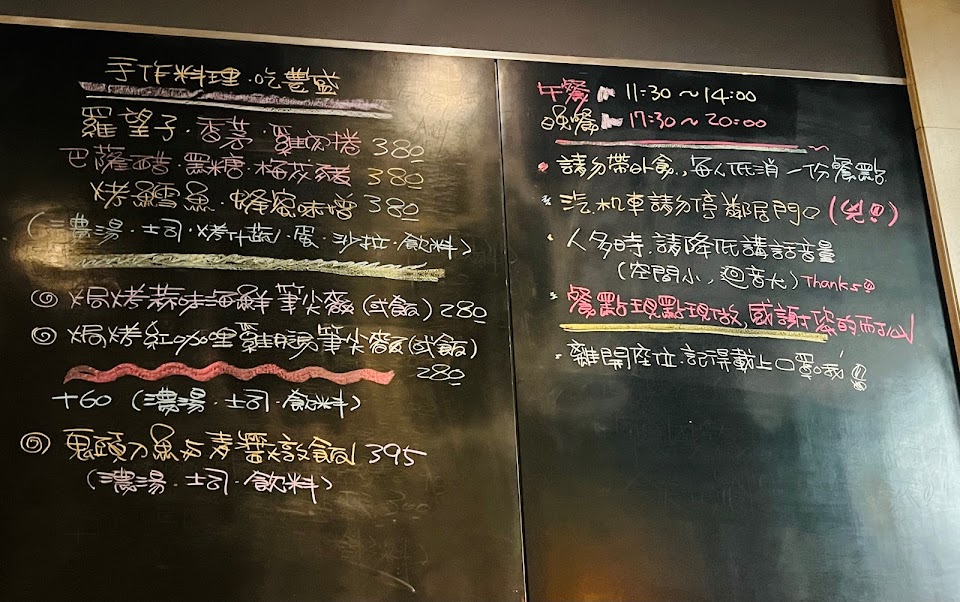 手作料理·吃豐盛
羅望子·香茅·雞肉捲 380
巴薩醋·黑糖·梅花豬 380
烤鱈魚·蜂蜜味噌 380
(濃湯·士司·烤什蔬·蛋·沙拉·飲料)
◎ 焗烤蒜味海鮮筆尖麵(或飯) 280
◎ 焗烤紅咖哩雞腿筆尖麵(或飯)
280
+60 (濃湯·士司·飲料)
◎ 鬼頭刀魚与麦醬燉飯 395
(濃湯·士司·飲料)
午餐 11:30~14:00
晚餐 17:30~20:00
請勿帶外食,每人低消一份餐點
汽机車請勿停鄰居門口(兇!!)
人多時,請降低講話音量
(空間小,迴音大) Thanks
餐點現點現做,感謝您的耐心
離開座位,記得戴上口罩哦!!